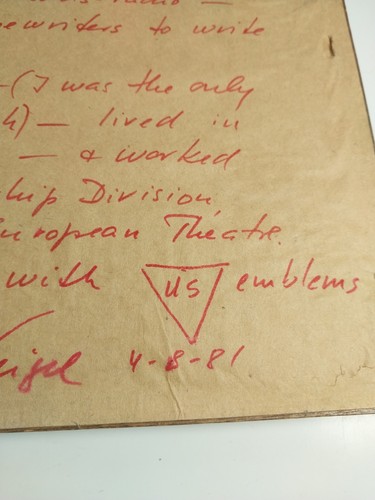 ewriters to write
- (I was the only
h) — lived in
— & worked
hip Division,
European Theatre.
with US emblems
eigel 4-8-81